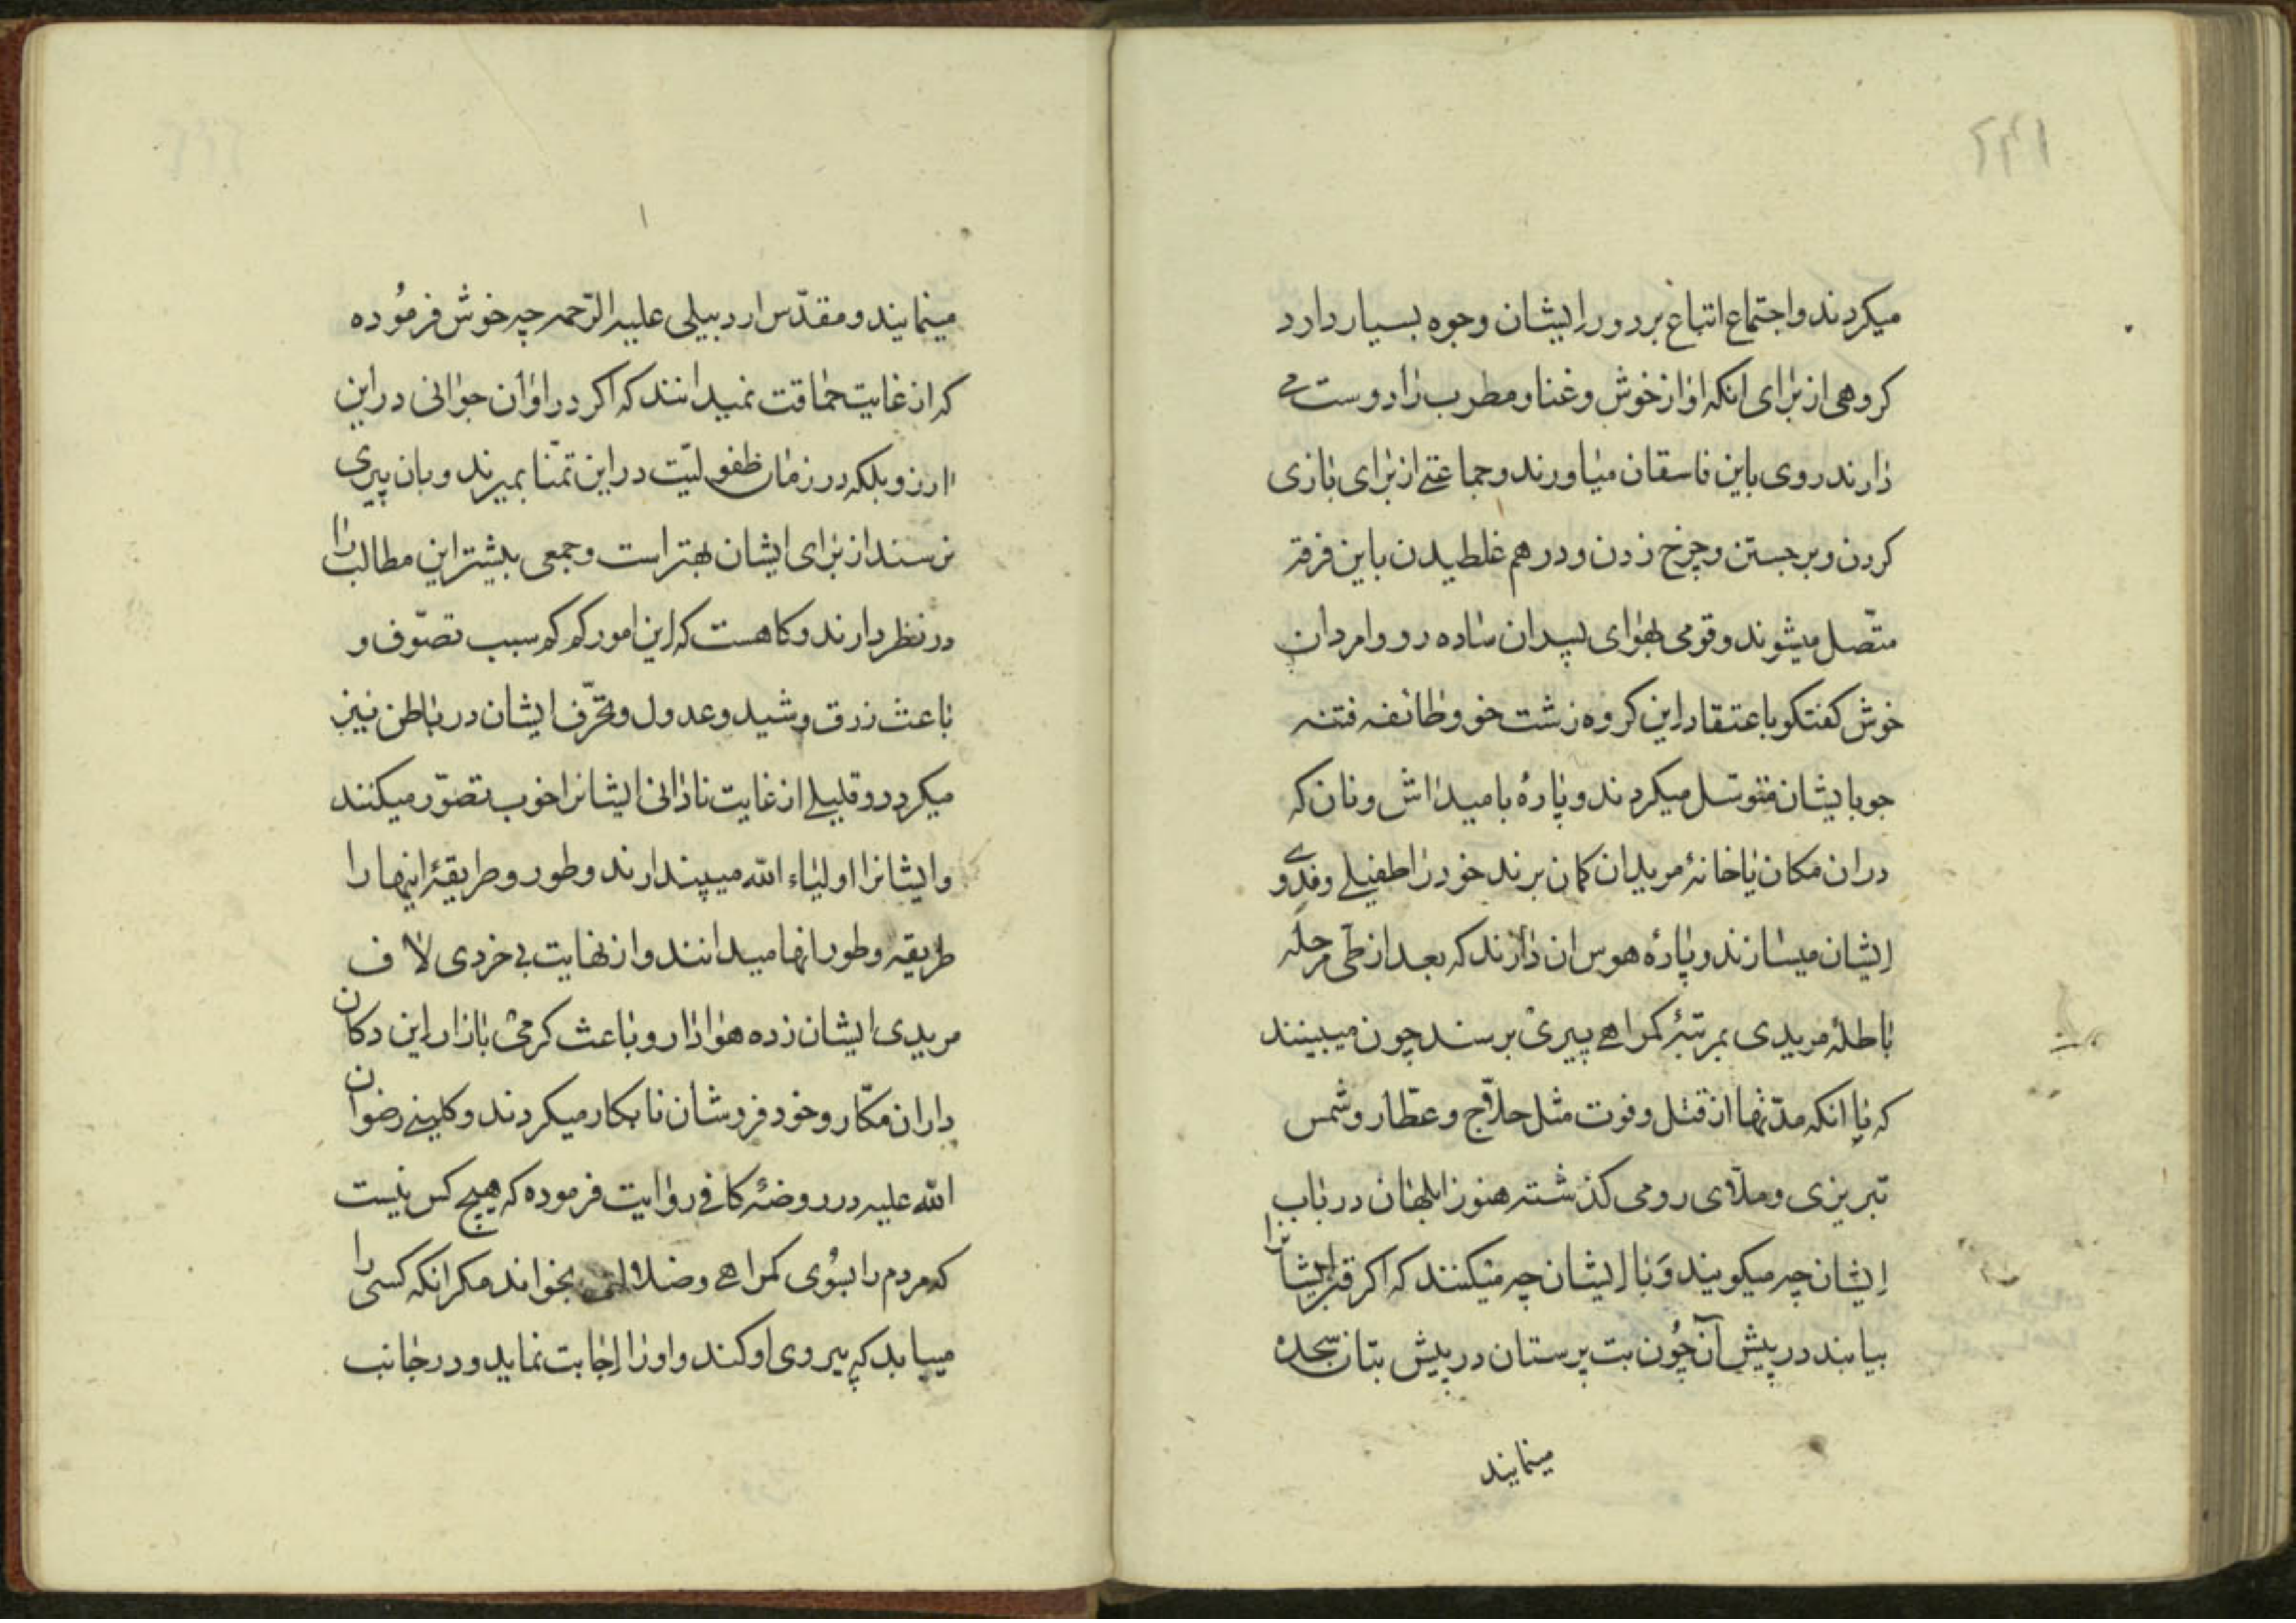 میکردند واجتماع اتباع بر دور ایشان وجوه بسیار دارد
کروهی از برای انکه اواز خوش وغنا ومطرب را دوست می
دارند روی باین فاسقان میاورند وجماعتی از برای بازی
کردن وبرجستن وچرخ زدن ودرهم غلطیدن باین فرقه
متّصل میشوند وقومی بهوای پسران ساده رو وامردان
خوش کفتکو باعتقاد این کروه زشت خو وطائفه فتنه
جو بایشان متوسّل میکردند وپارهٔ بامید اش ونان که
در ان مکان یا خانهٔ مریدان کمان برند خود را طفیلی وفدوی
ایشان میسازند وپارهٔ هوس ان دارند که بعد از طی مرحله
باطلهٔ مریدی بمرتبهٔ کمراهی پیری برسند چون میبینند
که با انکه مدّتها از قتل وفوت مثل حلاّج وعطّار وشمس
تبریزی وملاّی رومی کذشته هنوز ابلهان در باب
ایشان چه میکویند وَبا ایشان چه میکنند که اکر قبر ایشانرا
بیابند در پیش آن چُون بت پرستان در پیش بتان سجده
مینمایند
مینمایند ومقدّس اردبیلی علیه الرّحمه چه خوش فرمُوده
که از غایت حماقت نمیدانند که اکر در اوان جوانی در این
ارزو بلکه در زمان طفولیّت در این تمنّا بمیرند وبان پیری
نرسند از برای ایشان بهتر است وجمعی بیشتر این مطالب را
در نظر دارند وکاهست که این امور کم کم سبب تصوّف و
باعث زرق وشید وعدول وتحرّف ایشان در باطن نیز
میکردد وقلیلی از غایت نادانی ایشانرا خوب تصوّر میکنند
وایشانرا اولیاء الله میپندارند وطور وطریقهٔ اینها را
طریقه وطور انها میدانند واز نهایت بی خردی لاف
مریدی ایشان زده هوادار وباعث کرمی بازار این دکان
داران مکّار وخود فروشان نابکار میکردند وکلینی رضوان
الله علیه در روضهٔ کافی روایت فرموده که هیچ کس نیست
که مردم را بسُوی کمراهی وضلالت بخواند مکر انکه کسی را
میابد که پیروی او کند واورا اجابت نماید ودر جانب